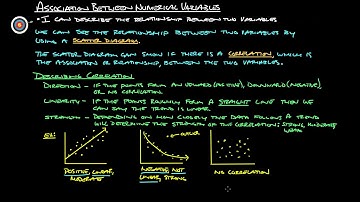 ASSOCIATION BETWEEN NUMERICAL VARIABLES
• I CAN DESCRIBE THE RELATIONSHIP BETWEEN TWO VARIABLES
WE CAN SEE THE RELATIONSHIP BETWEEN TWO VARIABLES BY
USING A SCATTER DIAGRAM.
THE SCATTER DIAGRAM CAN SHOW IF THERE IS A CORRELATION WHICH IS
THE ASSOCIATION OR RELATIONSHIP, BETWEEN THE TWO VARIABLES.
DESCRIBING CORRELATION
DIRECTION - IF THE POINTS FORM AN UPWARD (POSITIVE), DOWNWARD (NEGATIVE),
OR NO CORRELATION.
LINEARITY - IF THE POINTS ROUGHLY FORM A STRAIGHT LINE THEN WE
CAN SAY THE TREND IS LINEAR.
STRENGTH - DEPENDING ON HOW CLOSELY THE DATA FOLLOWS A TREND
WILL DETERMINE THE STRENGTH OF THE CORRELATION: STRONG, MODERATE
WEAK
EX:
OUTLIER
POSITIVE, LINEAR,
MODERATE
NEGATIVE, NOT
LINEAR, STRONG
NO CORRELATION